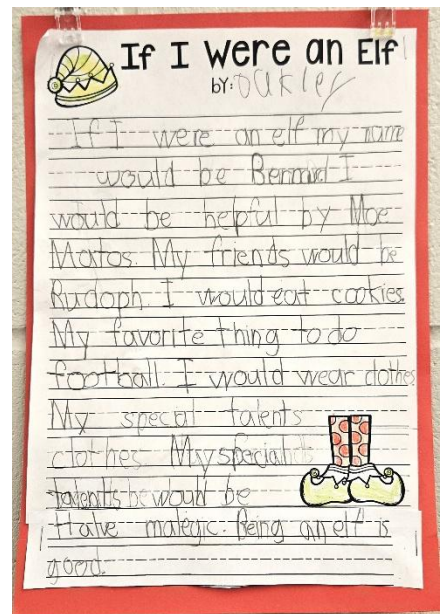 If I were an Elf
BY: Oakley
If I were an elf my name
would be Bernard I
would be helpful by Moe
Matos. My friends would be
Rudoph. I would eat cookies
My favorite thing to do
football. I would wear clothes
My special talents
clothes My special
talents be would be
Halve malegic. Being an elf is
good.